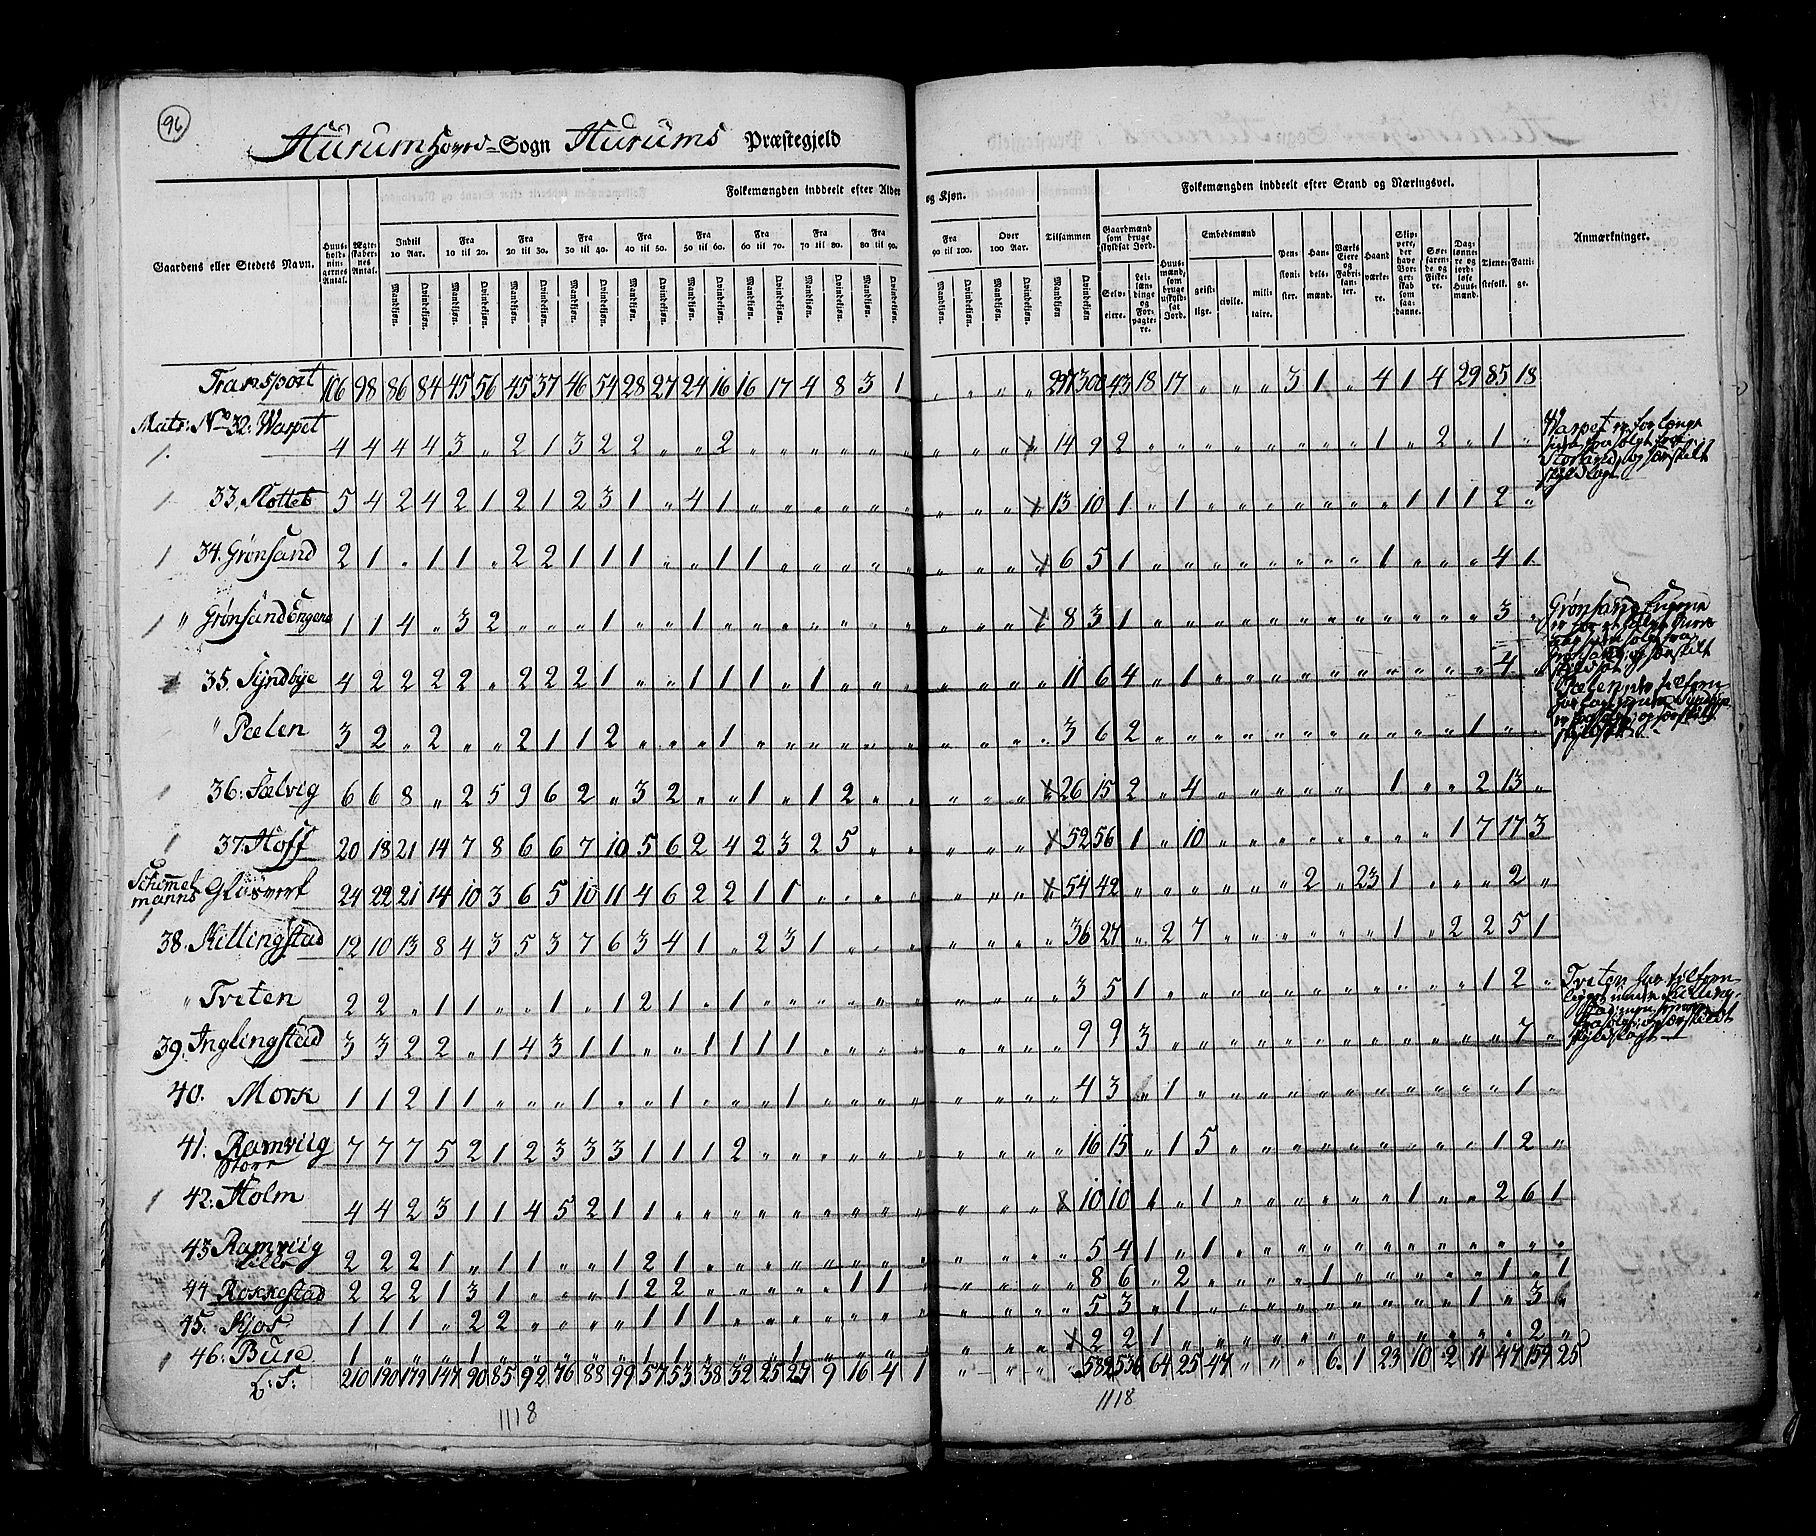 96
Hurum Hoved-Sogn Hurums Præstegjeld
Gaardens eller Stedets Navn.
Huusholdningernes Antal.
Ægteskabernes Antal.
Folkemængden inddeelt efter Alder og Kjøn.
Indtil 10 Aar.
Fra 10 til 20.
Fra 20 til 30.
Fra 30 til 40.
Fra 40 til 50.
Fra 50 til 60.
Fra 60 til 70.
Fra 70 til 80.
Fra 80 til 90.
Fra 90 til 100.
Over 100 Aar.
Tilsammen
Mandkjøn. Qvindekjøn.
Folkemængden inddeelt efter Stand og Næringsvei.
Gaardmænd som bruge skyldsat Jord.
Selveiere.
Leilændinge og Forpagtere.
Huusmænd, som bruge uskyldsat Jord.
Embedsmænd
geistlige. civile. militaire.
Pensionister.
Handelsmænd.
Værks Eiere og Fabrikanter.
Haandværkere.
Skippere, der have Borgerskab som saadanne.
Søefarende og Fiskere.
Daglønnere og jordløse Huusmænd.
Tjenestefolk.
Fattige.
Anmærkninger.
Transport 106 98 86 84 45 56 45 37 46 54 28 27 24 16 16 17 4 8 3 1 " " " " 297 300 43 18 17 " " " 3 1 " 4 1 4 29 85 18
Matr: No 32: Warpet 4 4 4 4 3 " 2 1 3 2 2 " " 2 " " " " " " " " " " 14 9 2 " " " " " " " " 1 " 2 " 1 "
33. Klottet 5 4 2 4 2 1 2 1 2 3 1 " 4 1 " " " " " " " " " " 13 10 1 " 1 " " " " " " " 1 1 1 2 "
34. Grønsand 2 1 " 1 1 " 2 2 1 1 1 " " 1 1 " " " " " " " " " 6 5 1 " " " " " " " " 1 " " " 4 1
" Grønsand Engene 1 1 4 " 3 2 " " " 1 " " 1 " " " " " " " " " " " 8 3 1 " " " " " " " " " " " " 3 "
35. Syndbye 4 2 2 2 2 " 2 2 2 1 " " 1 1 1 " 1 " " " " " " " 11 6 4 " 1 " " " " " " " " " " 4 "
" Pælen 3 2 " 2 " " 2 1 1 2 " " " 1 " " " " " " " " " " 3 6 2 " " " " " " " " " " " 1 " "
36: Sælvig 6 6 8 " 2 5 9 6 2 " 3 2 " " 1 " 1 2 " " " " " " 26 15 2 " 4 " " " " " " 1 " " 2 13 "
37. Hoff 20 18 21 14 7 8 6 6 7 10 5 6 2 4 2 3 2 5 " " " " " " 52 56 1 " 10 " " " " " " " " 1 7 17 3
Schimmelmanns Glasverk 24 22 21 14 10 3 6 5 10 11 4 6 2 2 1 1 " " " " " " " " 54 42 " " " " " " " 2 " 23 1 " " 2 "
38. Killingstad 12 10 13 8 4 3 5 3 7 6 3 4 1 " 2 3 1 " " " " " " " 36 27 " 2 7 " " " " " " 1 " 2 2 5 1
" Tveten 2 2 " 1 1 " " 1 " 1 2 1 " 1 " " " " " " " " " " 3 5 1 " " " " " " " " " " " 1 2 "
39. Inglingstad 3 3 2 2 " 1 4 3 1 1 " " 1 1 1 1 " " " " " " " " 9 9 3 " " " " " " " " " " " " 7 "
40. Mork 1 1 2 1 1 " " " 1 " " 1 " " " 1 " " " " " " " " 4 3 " 1 " " " " " " " " " " " 1 "
41. Ramviig Store 7 7 7 5 2 1 2 3 3 3 1 1 1 2 " " " " " " " " " " 16 15 " 1 5 " " " " " " " " " 1 2 "
42. Holm 4 4 2 3 1 1 4 5 2 1 1 " " " " " " " " " " " " " 10 10 1 " 1 " " " " " " 1 " " 2 6 1
43 Ramviig Lille 2 2 2 1 " 1 1 " " 1 2 1 " " " " " " " " " " " " 5 4 1 " 1 " " " " " " " " " " " "
44 Rokkestad 2 2 2 1 3 1 " " " 1 2 2 " " " " 1 1 " " " " " " 8 6 " 2 " " " " 1 " " " " " 1 " 1
45. Kjos 1 1 1 " 2 2 " " " " 1 1 1 " " " " " " " " " " " 5 3 " 1 " " " " " " " " " " 1 " 3
46. Bure 1 " " " 1 " " " " " 1 1 " 1 " " " " " " " " " " 2 2 1 " " " " " " " " " " " " 2 "
L: S: 210 190 179 147 90 85 92 76 88 99 57 53 38 32 25 27 9 16 4 1 " " " " 582 536 64 25 47 " " " 6 1 23 10 2 11 47 159 25
1118
1118
Warpet er for lange
siden frasolgt fra
og særskilt
skyldlagt
Grønsand Engene
solgt fra
Grønsand, og særskilt
skyldsat
Pælen
Syndbye
og særskilt
skyldsat
Tveten har tilforn
ligget under Killing-
stad
frasolgt, og særskildt
skyldlagt